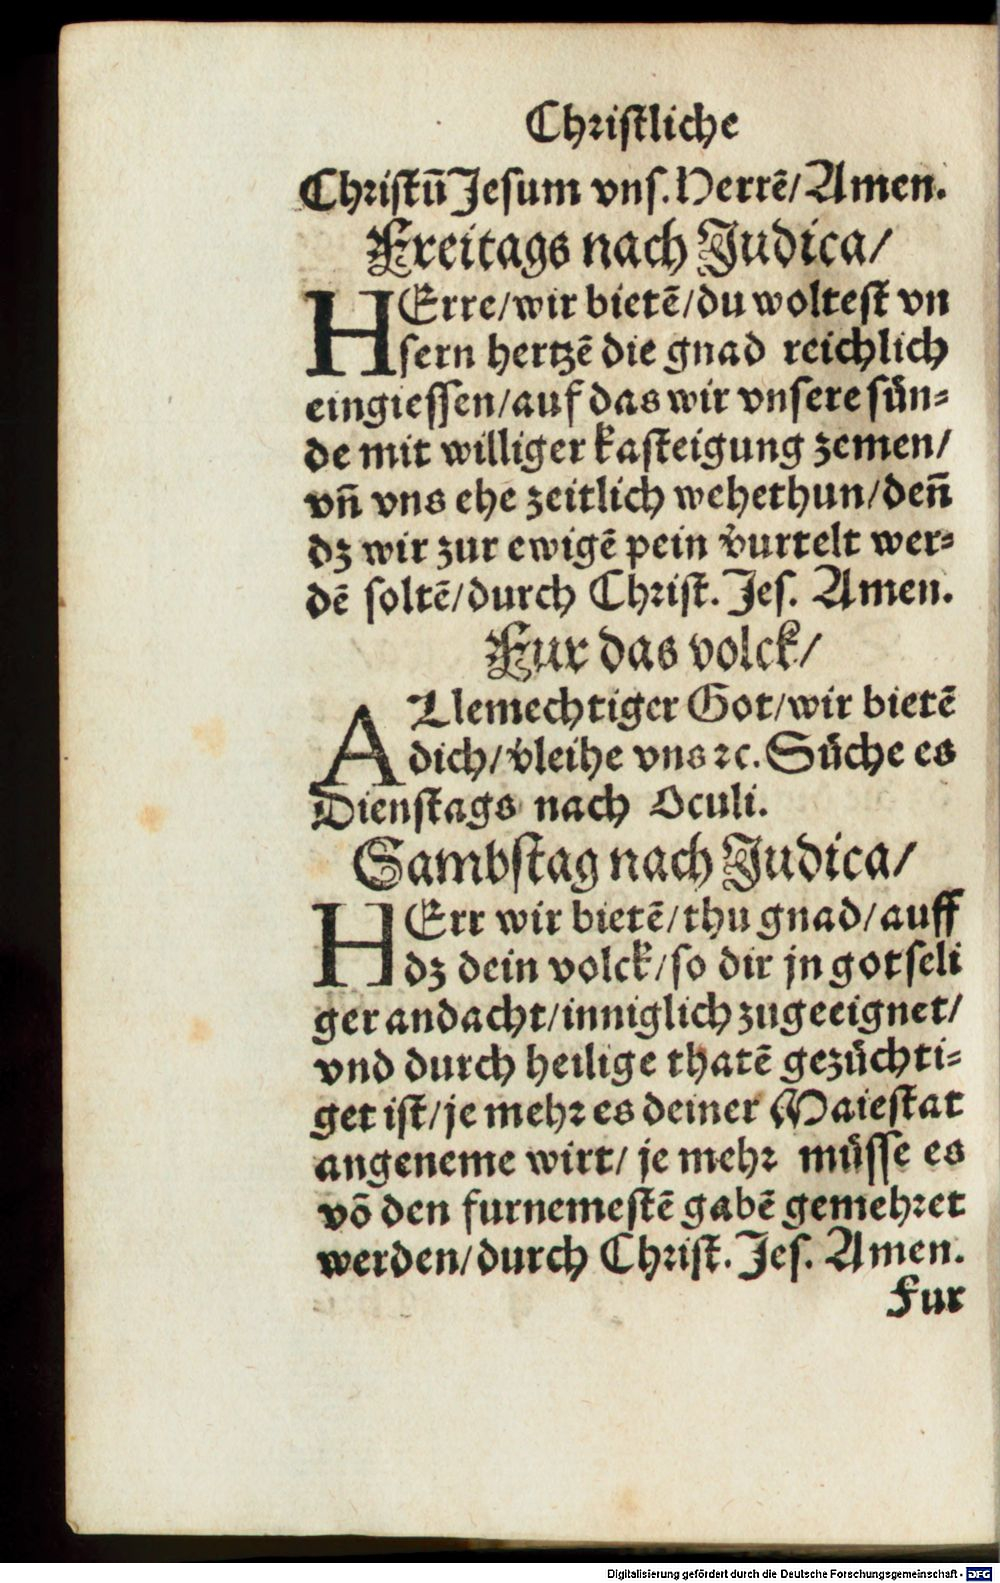 Christliche
Christuͤ Jesum vns. Herrẽ/ Amen.
Freitags nach Judica/
HErre/ wir bietẽ/ du woltest vn
sern hertzẽ die gnad reichlich
eingiessen/ auf das wir vnsere sün=
de mit williger kasteigung zemen/
vñ vns ehe zeitlich wehethun/ deñ
dz wir zur ewigẽ pein v̈urtelt wer=
dẽ soltẽ/ durch Christ. Jes. Amen.
Fur das volck/
ALlemechtiger Got/ wir bietẽ
dich/ v̈leihe vns ꝛc. Sůche es
Dienstags nach Oculi.
Sambstag nach Judica/
HErr wir bietẽ/ thu gnad/ auff
dz dein volck/ so dir jn gotseli
ger andacht/ inniglich zugeeignet/
vnd durch heilige thatẽ gezüchti=
get ist/ je mehr es deiner Maiestat
angeneme wirt/ je mehr müsse es
võ den furnemestẽ gabẽ gemehret
werden/ durch Christ. Jes. Amen.
Fur
Digitalisierung gefördert durch die Deutsche Forschungsgemeinschaft - DFG